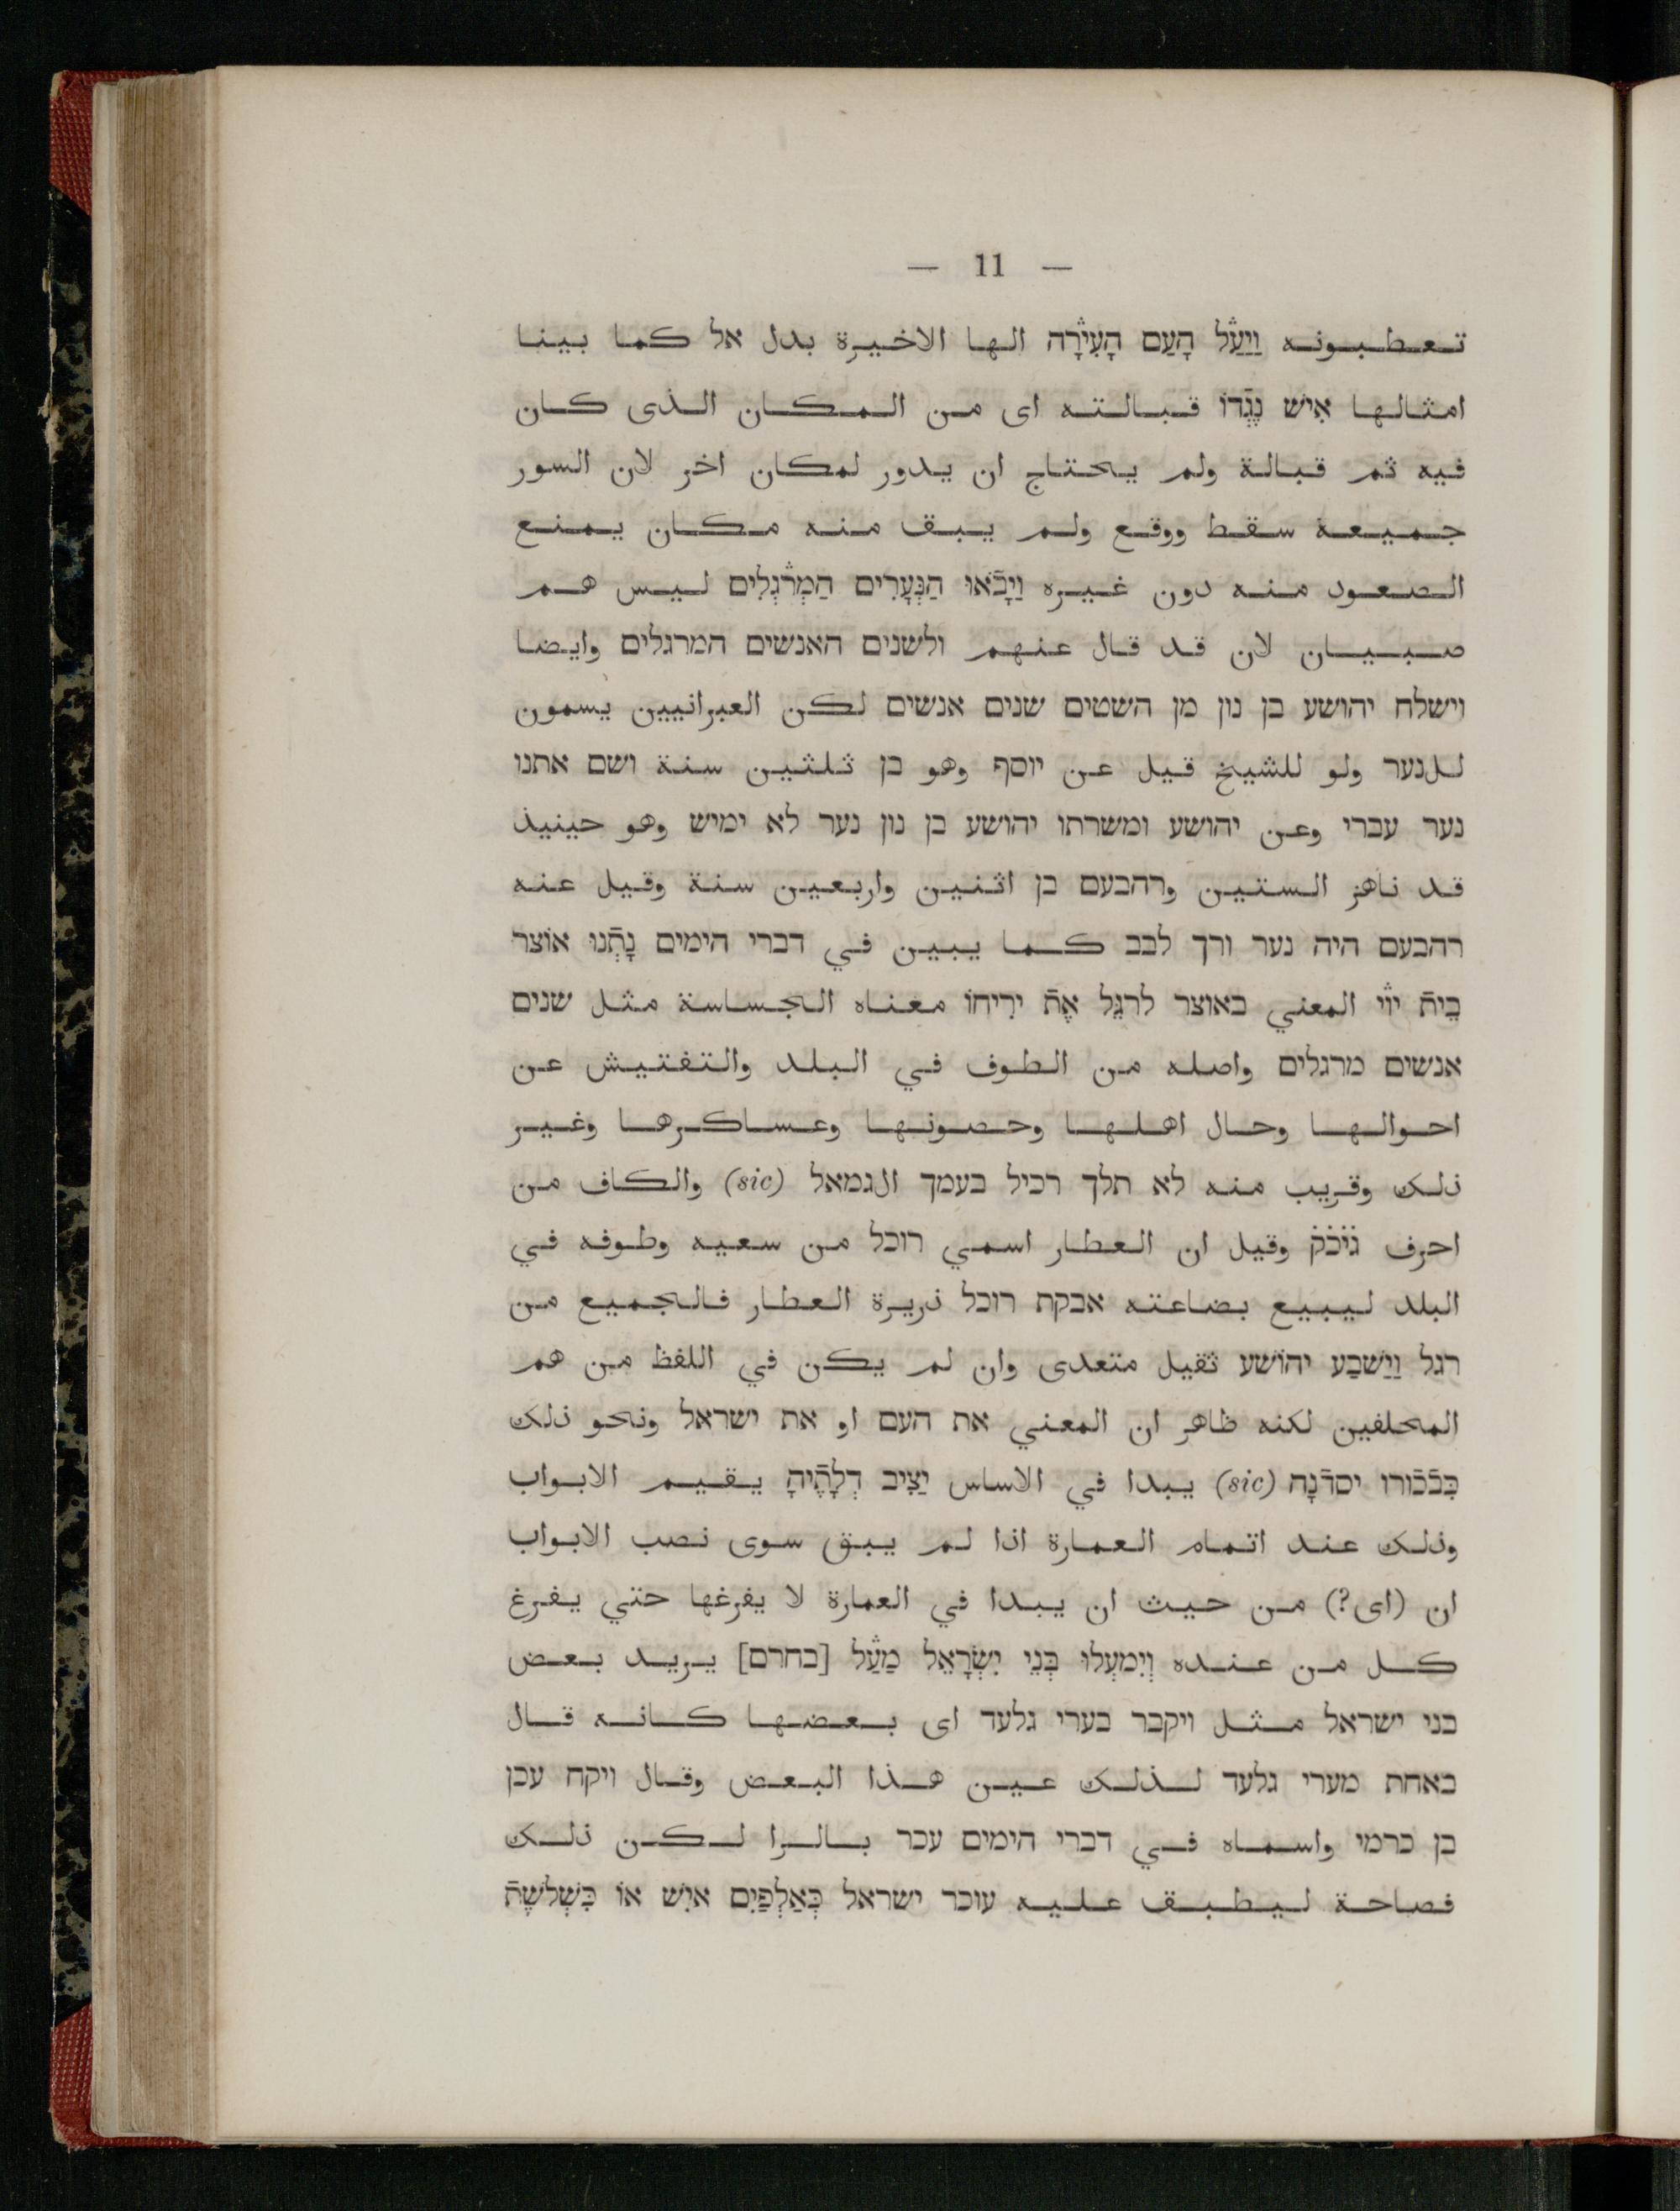 — 11 —
تعطبونه וַיַעַל הָעַם הָעִירָה الها الاخيرة بدل אל كما بينا
امثالها אִישׁ נֶגְדוֹ قبالته اى من المكان الذى كان
فيه ثم قبالة ولم يحتاج ان يدور لمكان اخر لان السور
جميعة سقط ووقع ولم يبق منه مكان يمنع
الصعود منه دون غيره וַיָבֹאוּ הַנְּעָרִים הַמְרַגְלִים ليس هم
صبيان لان قد قال عنهم ולשנים האנשים המרגלים وايضا
וישלח יהושע בן נון מן השטים שנים אנשים لكن العبرانيين يسمون
للנער ولو للشيخ قيل عن יוסף وهو בן ثلثين سنة ושם אתנו
נער עברי وعن יהושע ומשרתו יהושע בן נון נער לא ימיש وهو حينيذ
قد ناهز الستين ורחבעם בן اثنين واربعين سنة وقيل عنه
רחבעם היה נער ורך לבב كما يبين في דברי הימים נָתְנוּ אוֹצר
בֵית יוֹי المعني באוצר לרגֵל אֶת יריחוֹ معناه الجساسة مثل שנים
אנשים מרגלים واصله من الطوف في البلد والتفتيش عن
احوالها وحال اهلها وحصونها وعساكرها وغير
ذلك وقريب منه לא תלך רכיל בעמך الגמאל (sic) والكاف من
احرف גיכק وقيل ان العطار اسمي רוכל من سعيه وطوفه في
البلد ليبيع بضاعته אבקת רוכל ذريرة العطار فالجميع من
רגל וַיַשׁבַע יהוֹשע ثقيل متعدى وان لم يكن في اللفظ من هم
المحلفين لكنه ظاهر ان المعني את העם او את ישראל ونحو ذلك
בִּבֿכֿורו יסדֿנָה (sic) يبدا في الاساس יַצִיב דְלָתֶיהָ يقيم الابواب
وذلك عند اتمام العمارة اذا لم يبق سوى نصب الابواب
ان (اى?) من حيث ان يبدا في العمارة لا يفرغها حتي يفرغ
كل من عنده וְיִמעְלוּ בְּנֵי יִשְׂרָאֵל מַעַל [בחרם] يريد بعض
בני ישראל مثل ויקבר בערי גלעד اى بعضها كانه قال
באחת מערי גלעד لذلك عين هذا البعض وقال ויקח עכן
בן כרמי واسماه في דברי הימים עכר بالرا لكن ذلك
فصاحة ليطبق عليه עוכר ישראל כְּאַלְפַּיִם אִישׁ אוֹ כִּשְׁלֹשֶׁת